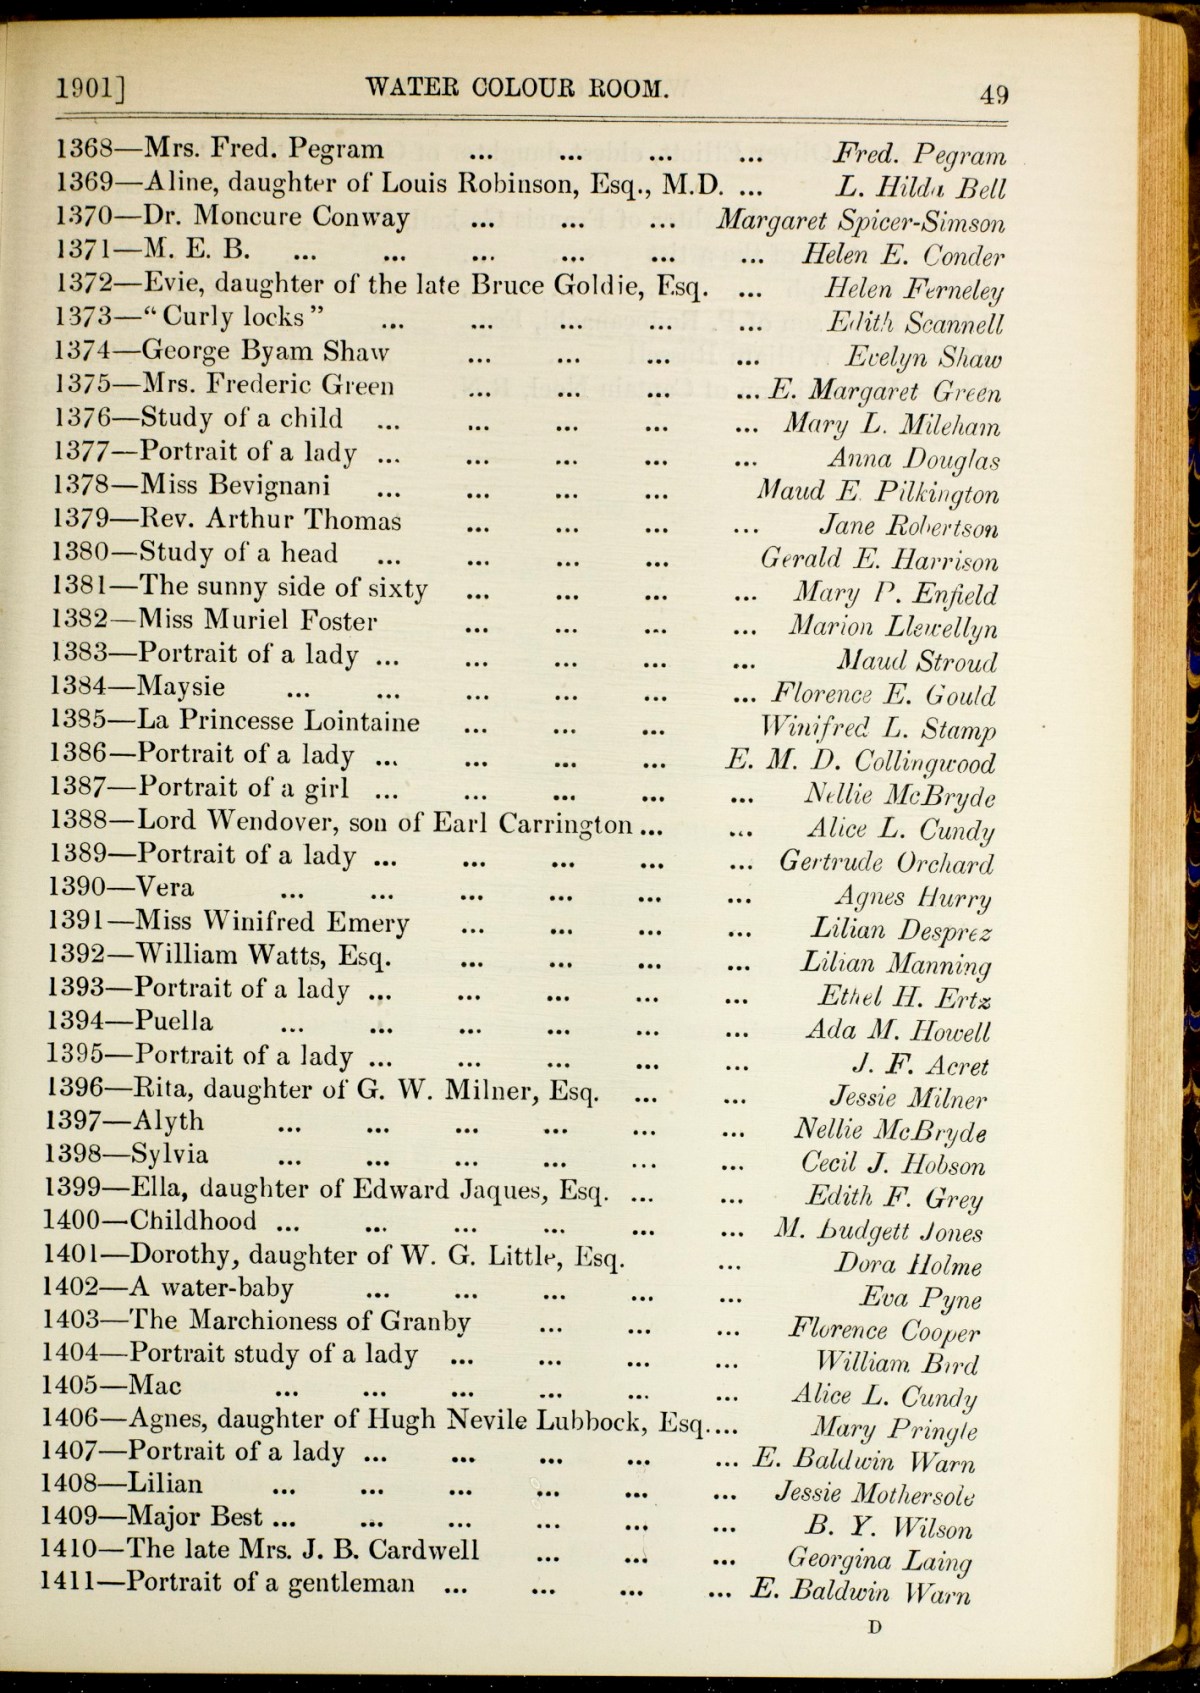 1901] WATER COLOUR ROOM. 49
1368—Mrs. Fred. Pegram ... ... ... ... Fred. Pegram
1369—Aline, daughter of Louis Robinson, Esq., M.D. ... L. Hilda Bell
1370—Dr. Moncure Conway ... ... ... Margaret Spicer-Simson
1371—M. E. B. ... ... ... ... ... ... Helen E. Conder
1372—Evie, daughter of the late Bruce Goldie, Esq. ... Helen Ferneley
1373—“Curly locks” ... ... ... ... ... Edith Scannell
1374—George Byam Shaw ... ... ... ... Evelyn Shaw
1375—Mrs. Frederic Green ... ... ... ... E. Margaret Green
1376—Study of a child ... ... ... ... ... Mary L. Mileham
1377—Portrait of a lady ... ... ... ... ... Anna Douglas
1378—Miss Bevignani ... ... ... ... Maud E. Pilkington
1379—Rev. Arthur Thomas ... ... ... ... Jane Robertson
1380—Study of a head ... ... ... ... Gerald E. Harrison
1381—The sunny side of sixty ... ... ... ... Mary P. Enfield
1382—Miss Muriel Foster ... ... ... ... Marion Llewellyn
1383—Portrait of a lady ... ... ... ... ... Maud Stroud
1384—Maysie ... ... ... ... ... ... Florence E. Gould
1385—La Princesse Lointaine ... ... ... Winifred L. Stamp
1386—Portrait of a lady ... ... ... ... E. M. D. Collingwood
1387—Portrait of a girl ... ... ... ... ... Nellie McBryde
1388—Lord Wendover, son of Earl Carrington ... ... Alice L. Cundy
1389—Portrait of a lady ... ... ... ... ... Gertrude Orchard
1390—Vera ... ... ... ... ... ... Agnes Hurry
1391—Miss Winifred Emery ... ... ... ... Lilian Desprez
1392—William Watts, Esq. ... ... ... ... Lilian Manning
1393—Portrait of a lady ... ... ... ... ... Ethel H. Ertz
1394—Puella ... ... ... ... ... ... Ada M. Howell
1395—Portrait of a lady ... ... ... ... ... J. F. Acret
1396—Rita, daughter of G. W. Milner, Esq. ... ... Jessie Milner
1397—Alyth ... ... ... ... ... ... Nellie McBryde
1398—Sylvia ... ... ... ... ... ... Cecil J. Hobson
1399—Ella, daughter of Edward Jaques, Esq. ... ... Edith F. Grey
1400—Childhood ... ... ... ... ... ... M. Budgett Jones
1401—Dorothy, daughter of W. G. Little, Esq. ... Dora Holme
1402—A water-baby ... ... ... ... ... Eva Pyne
1403—The Marchioness of Granby ... ... ... Florence Cooper
1404—Portrait study of a lady ... ... ... ... William Bird
1405—Mac ... ... ... ... ... ... Alice L. Cundy
1406—Agnes, daughter of Hugh Nevile Lubbock, Esq.... Mary Pringle
1407—Portrait of a lady ... ... ... ... ... E. Baldwin Warn
1408—Lilian ... ... ... ... ... ... Jessie Mothersole
1409—Major Best ... ... ... ... ... ... B. Y. Wilson
1410—The late Mrs. J. B. Cardwell ... ... ... Georgina Laing
1411—Portrait of a gentleman ... ... ... ... E. Baldwin Warn
D